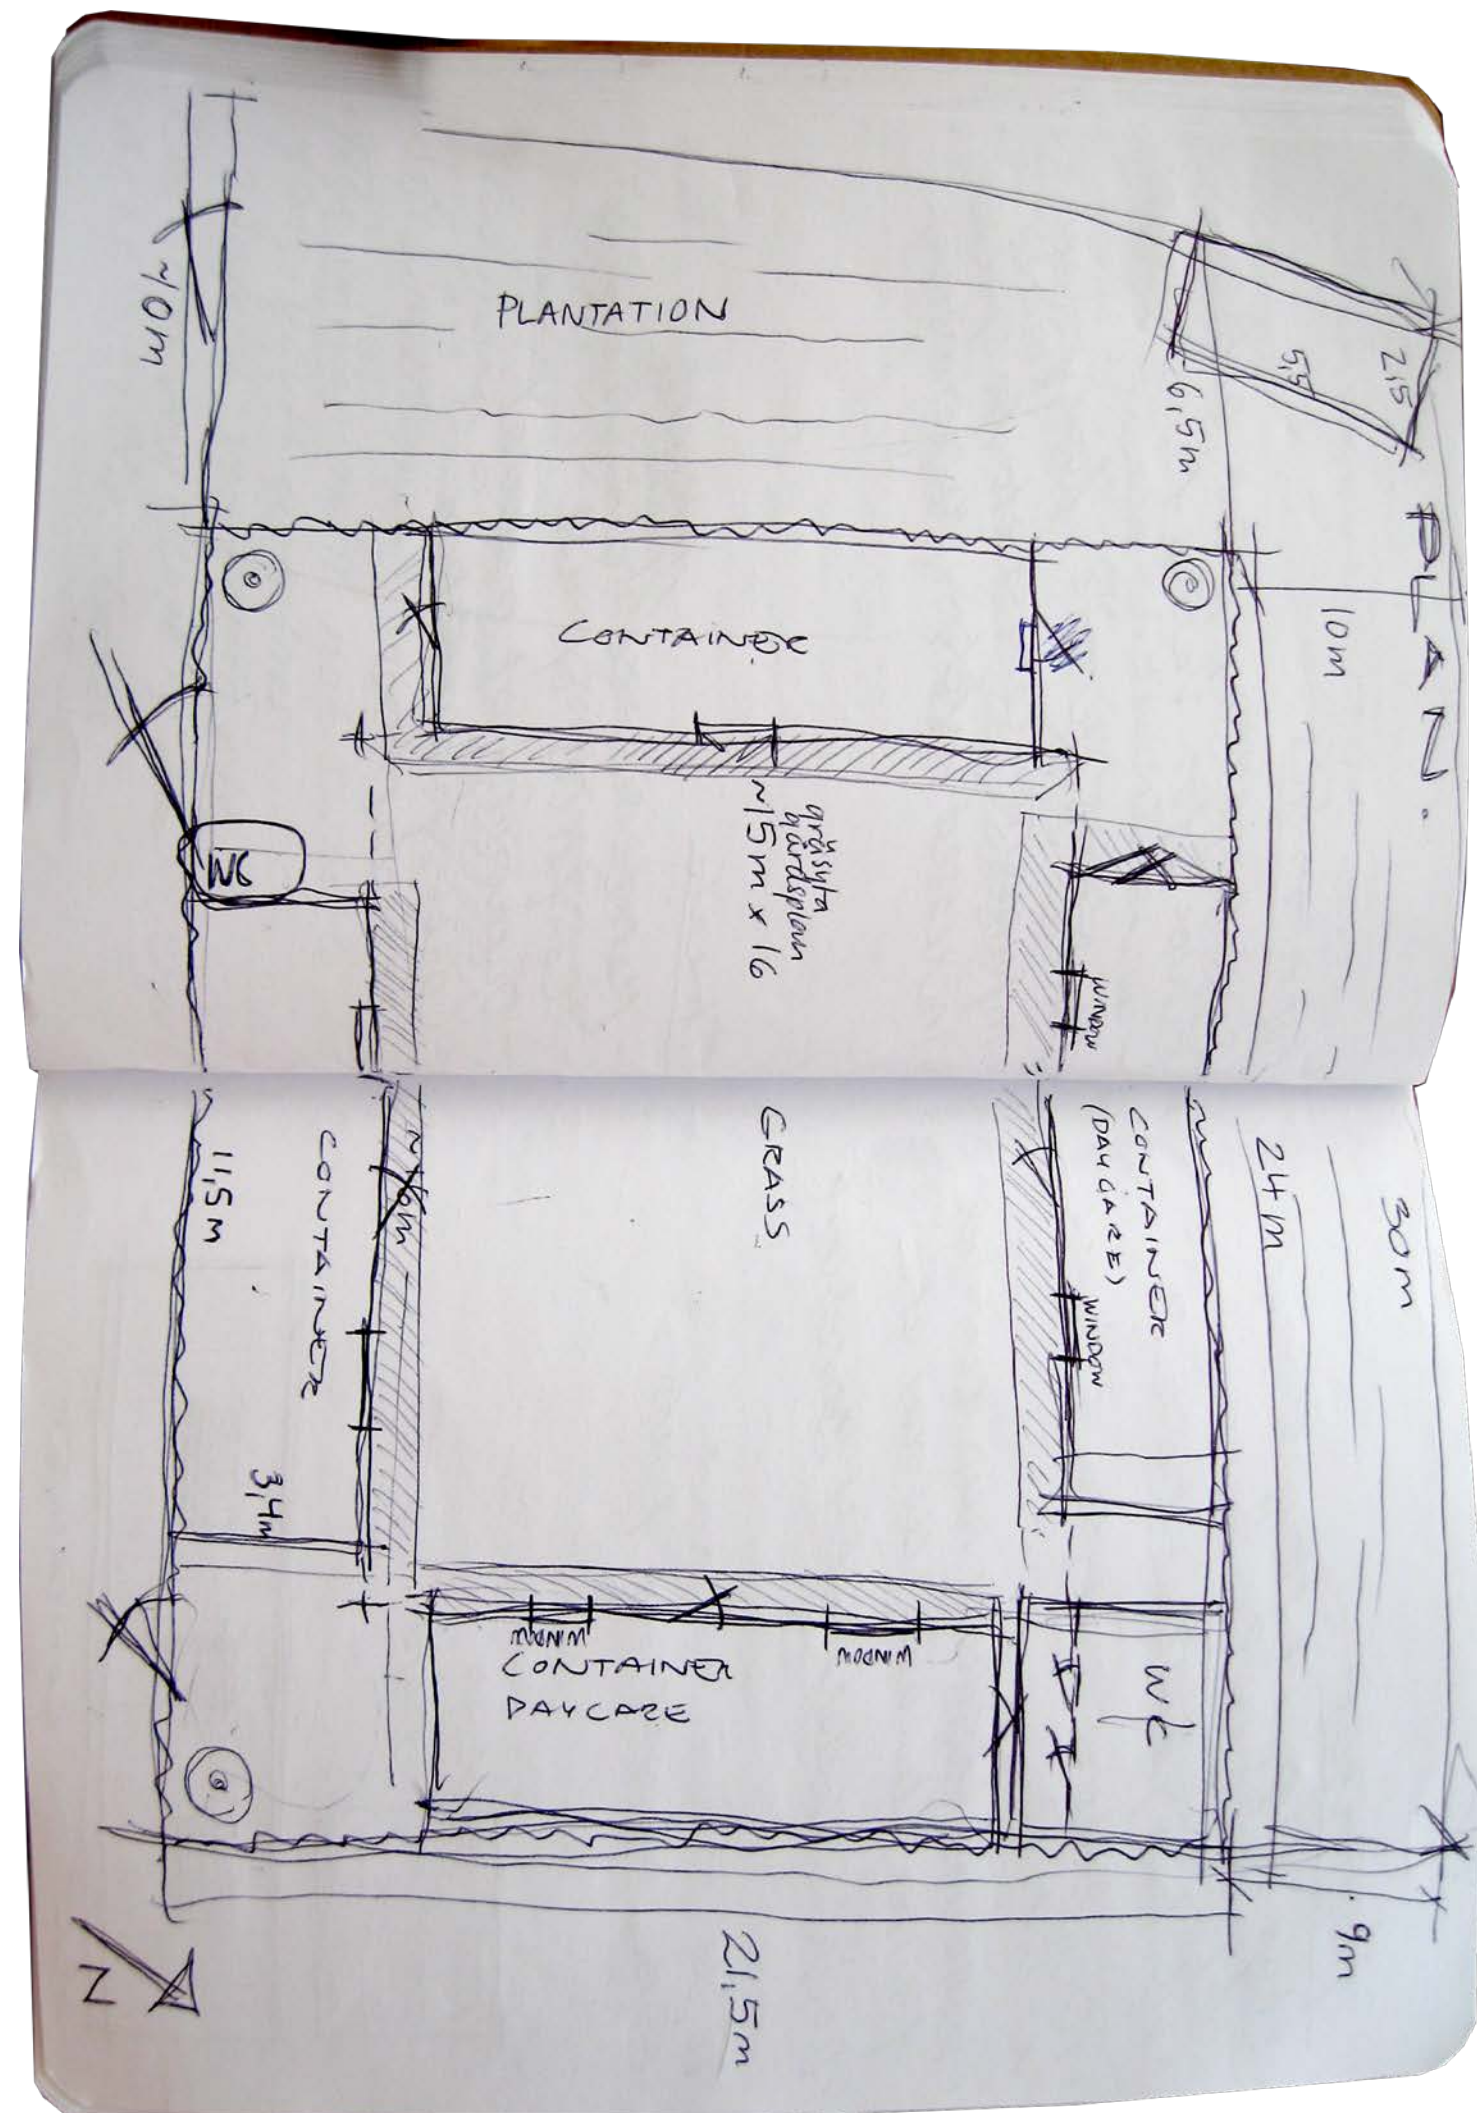 PLAN.
2,5
5,5
6,5m
~10m
PLANTATION
10m
CONTAINER
gräsyta
gårdsplan
~15m x 16
WC
WINDOW
GRASS
CONTAINER
(DAYCARE)
WINDOW
24m
30m
~16m
CONTAINER
11,5m
3,4m
WINDOW
WINDOW
CONTAINER
DAYCARE
WC
9m
21,5m
N